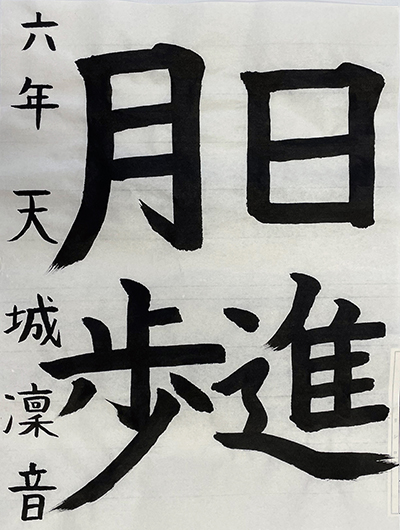 日進
月歩
六年 天城凜音